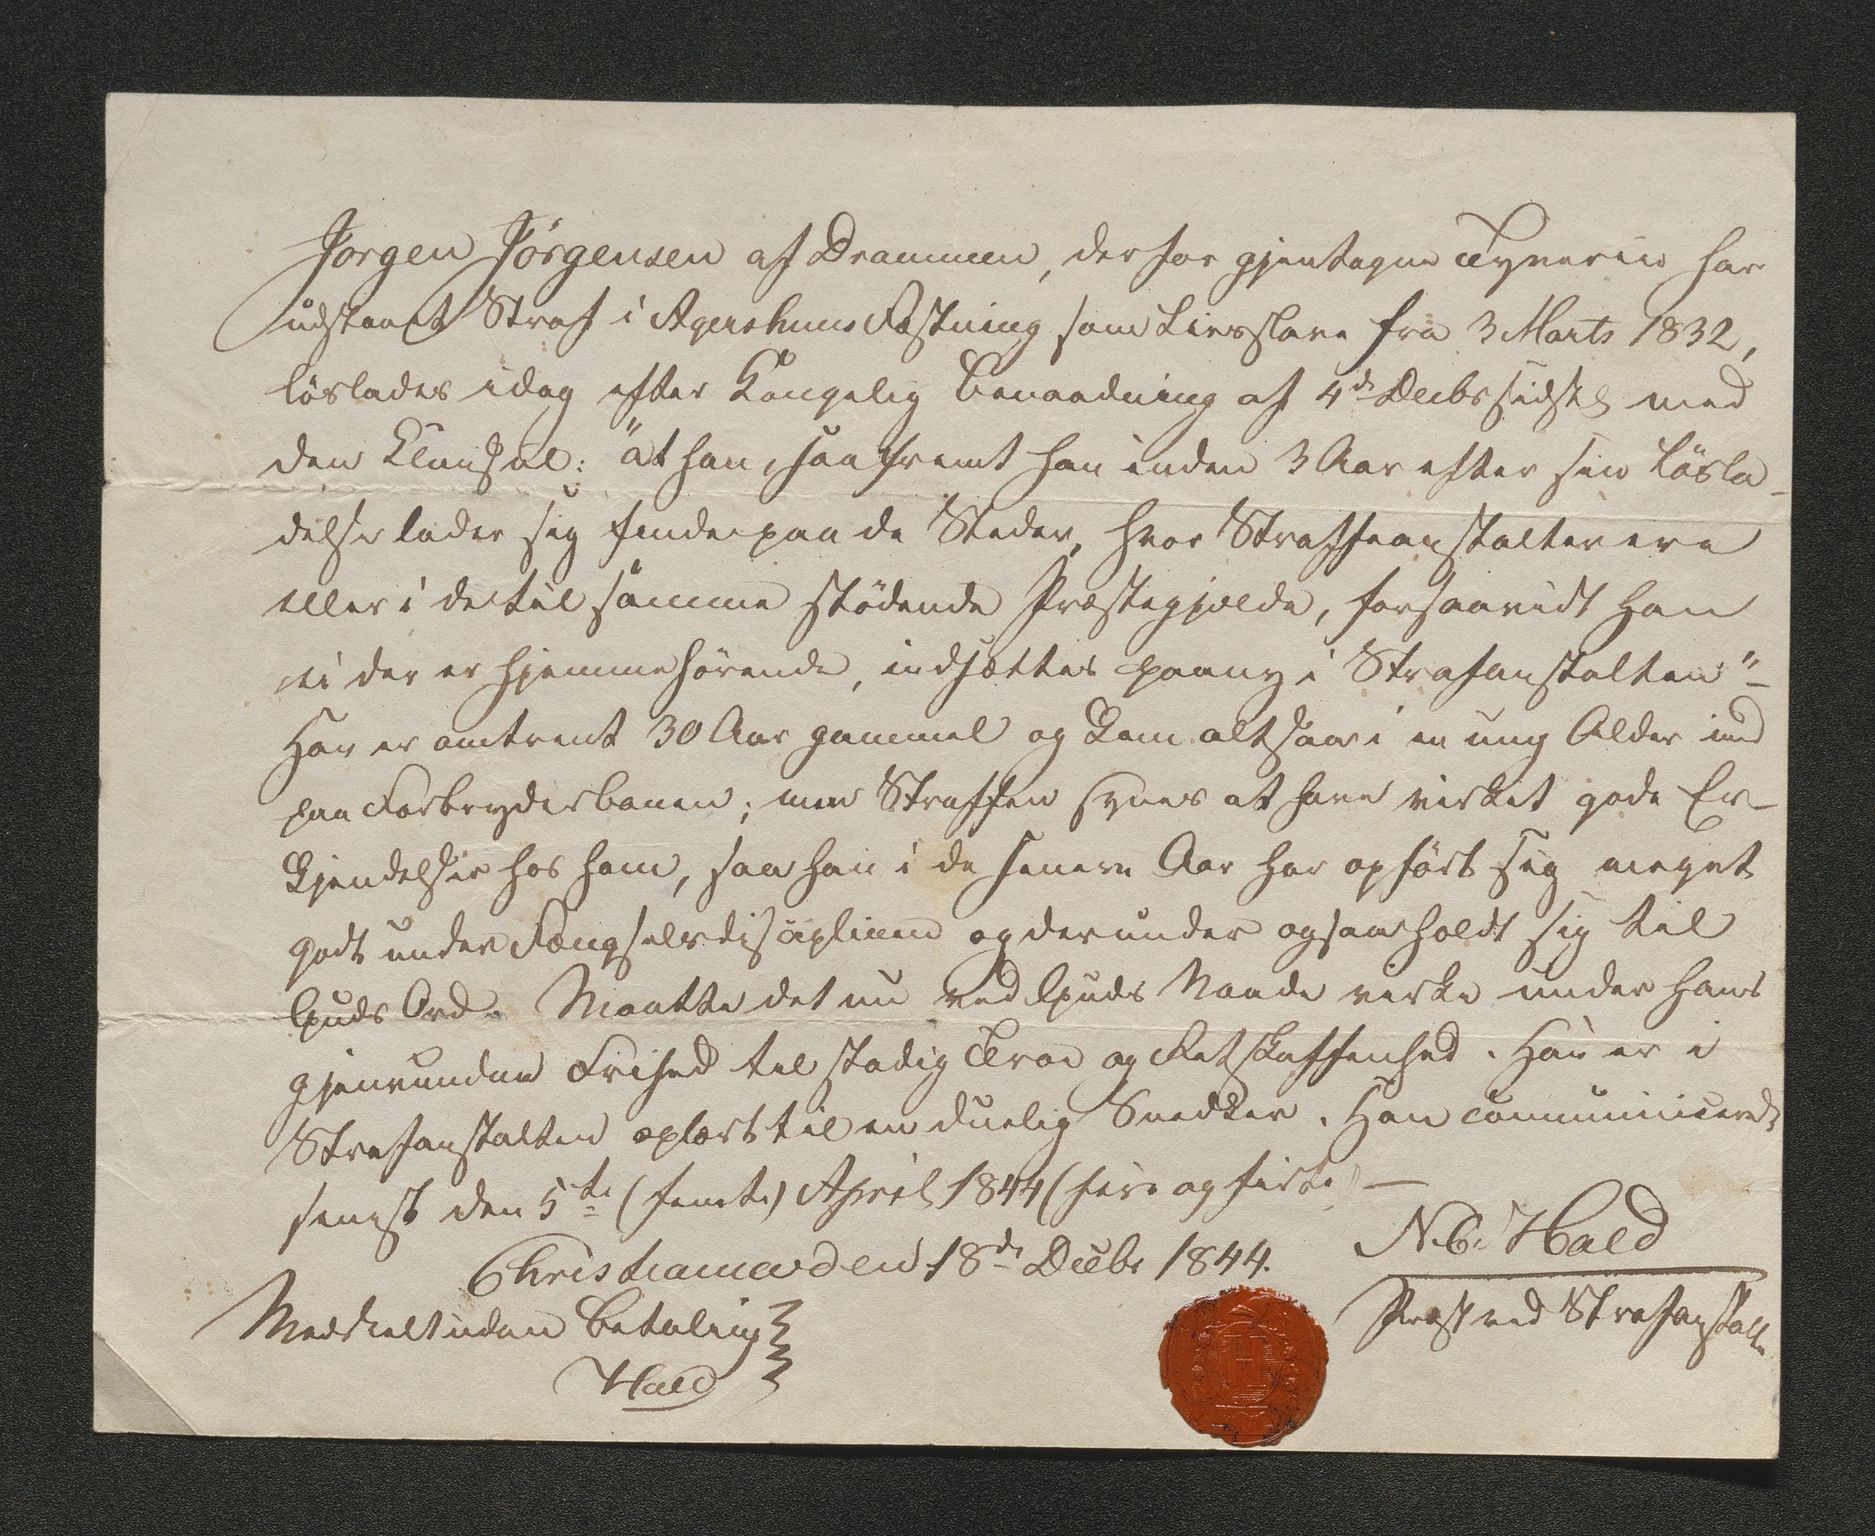 Jørgen Jørgensen af Drammen, der for gjentagne Tyverier har
udstaaet Straf i Agershuus Fæstning som Livsslave fra 3 Marts 1832,
løslades idag efter Kongelig Benaadning af 4de Decbr sidstl. med
den Klausul: "at han, saafremt han inden 3 Aar efter sin Løsla-
delse lader sig finde paa de Steder, hvor Straffeanstalter ere
eller i de til samme stødende Præstegjelde, forsaavidt han
ei der er hjemmehørende, indsættes paany i Strafanstalten"-
Han er omtrent 30 Aar gammel og kom altsaa i en ung Alder ind
paa Forbryderbanen; men Straffen synes at have virket gode Er-
kjendelser hos ham, saa han i de senere Aar har opført sig meget
godt under Fængselsdisciplinen og derunder ogsaa holdt sig til
Guds Ord. Maatte det nu ved Guds Naade virke under hans
gjenvundne Frihed til stadig Troe og Retskaffenhed. Han er i
Strafanstalten oplært til en duelig Snedker. Han communicerede
senest den 5te (femte) April 1844 (fire og firti) —
Christiania den 18de Decbr 1844.
N.C. Hald
Præst ved Strafanstalt.
Meddeelt uden Betaling
Hald